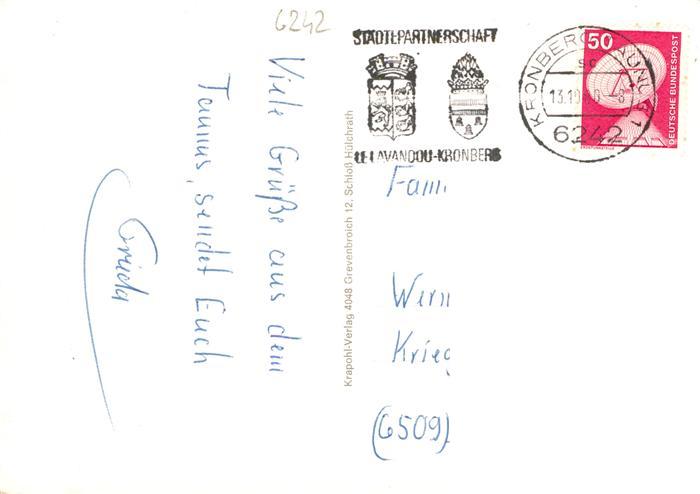 6242
STÄDTEPARTNERSCHAFT
LE LAVANDOU-KRONBERG
KRONBERG, TAUNUS 1
sc
13.10
6242
50
DEUTSCHE BUNDESPOST
ERDFUNKSTELLE
Viele Grüße aus dem
Taunus, sendet Euch
Krapohl-Verlag 4048 Grevenbroich 12, Schloß Hülchrath
Fam.
Wern
Krieg
(6509)